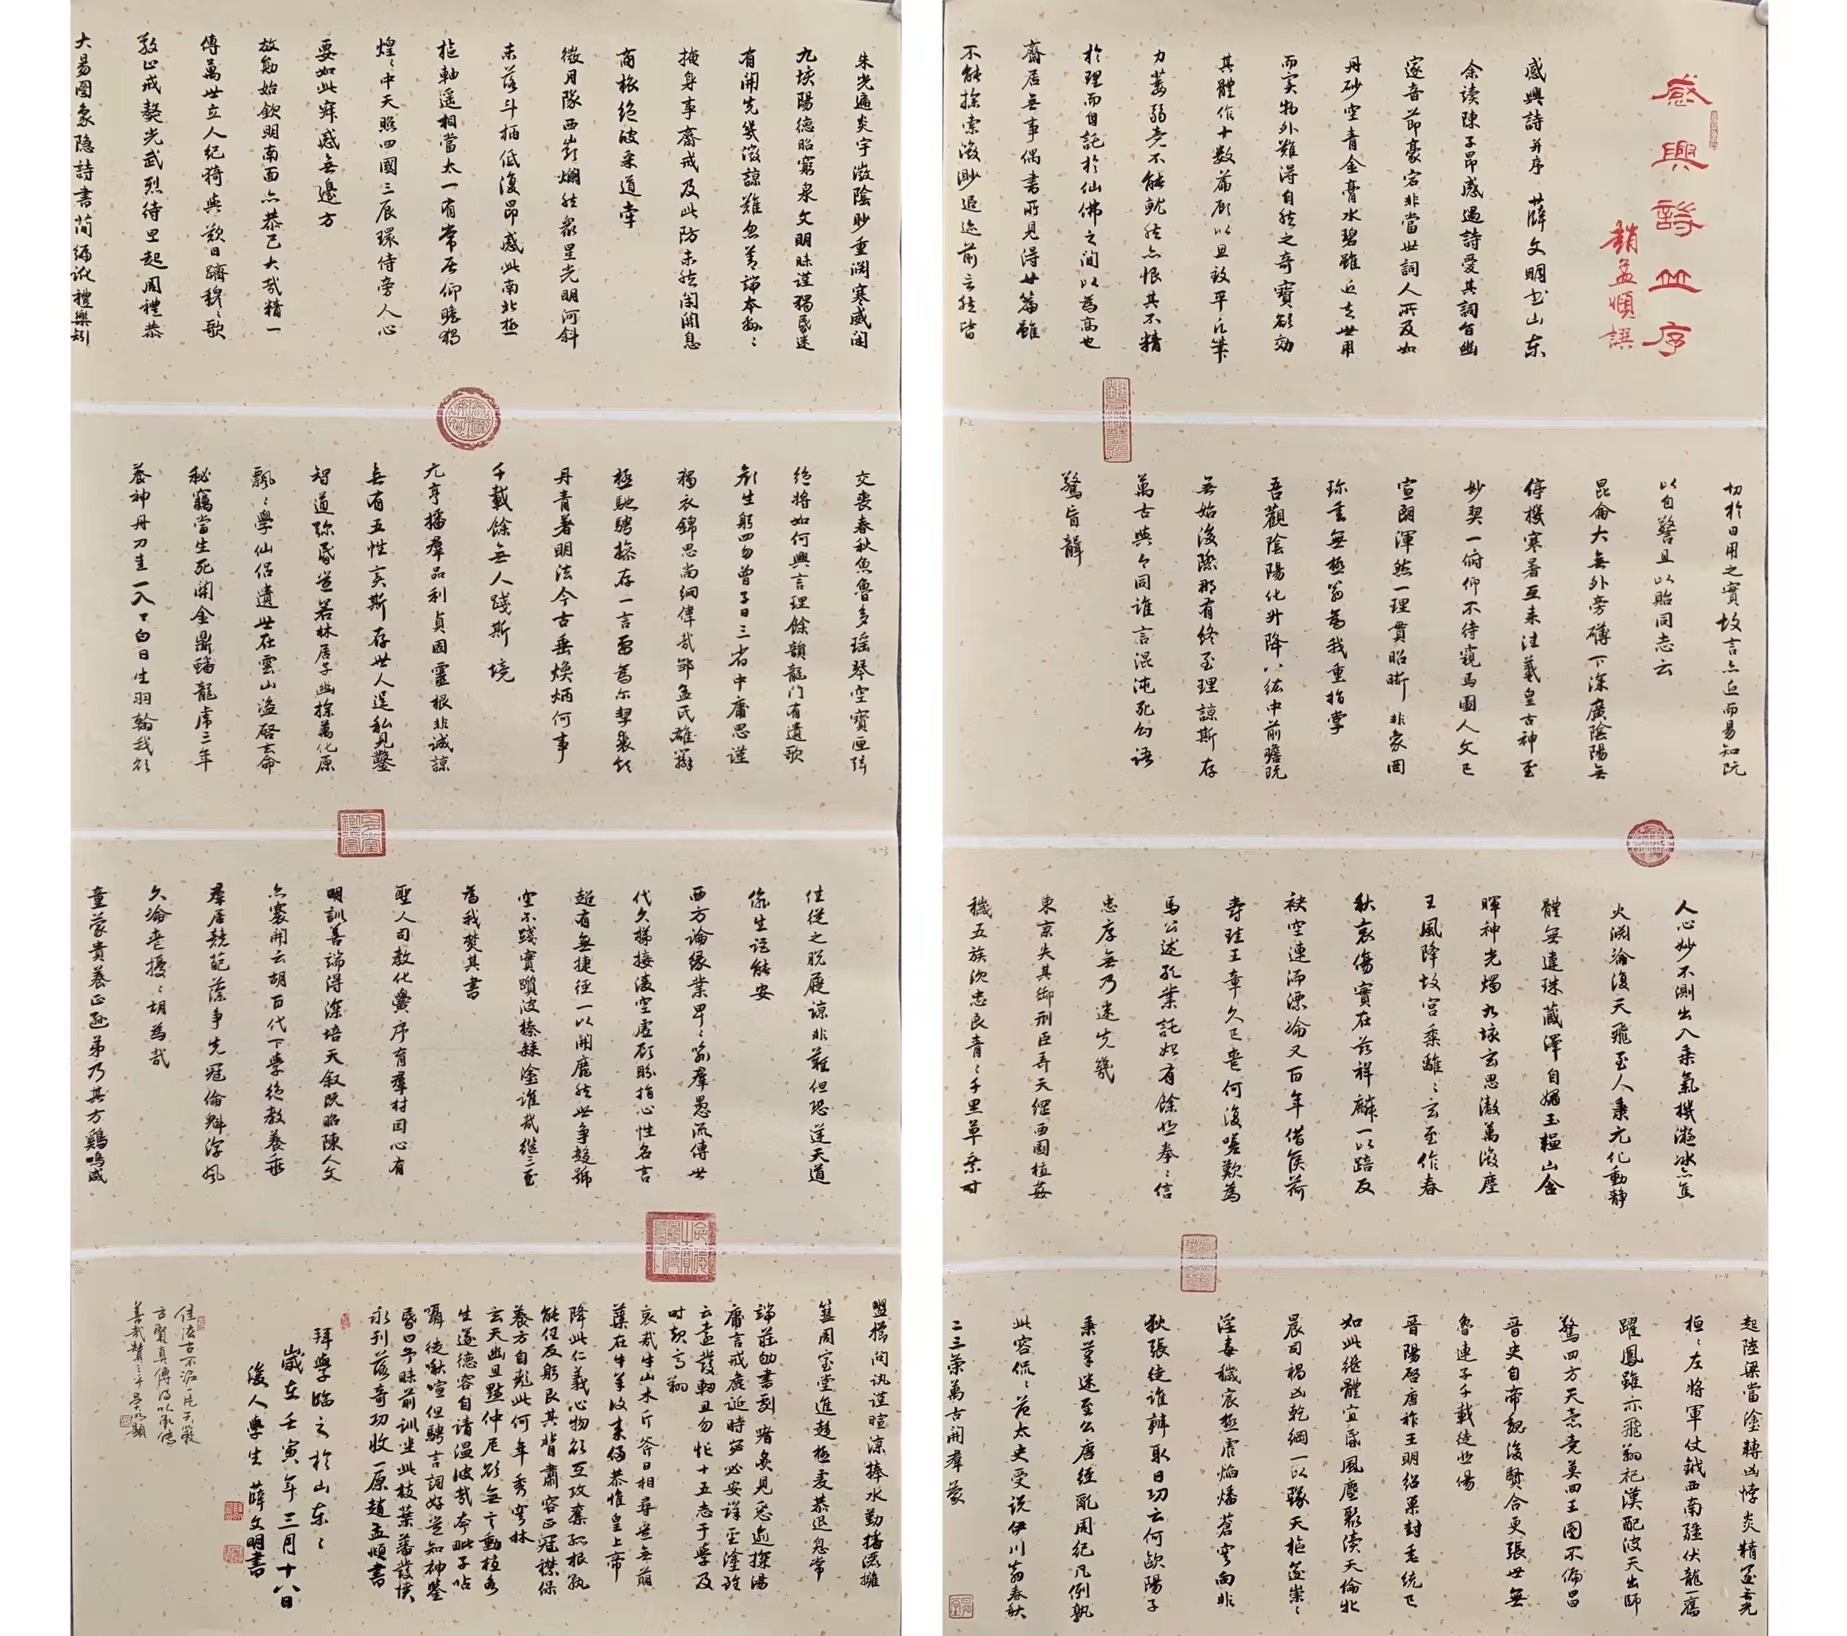 感興詩並序
趙孟頫譔
感興詩并序 薛文明书山东
余读陳子昂感遇詩愛其詞旨幽
邃音節豪宕非當世詞人所及如
丹砂空青金膏水碧雖近乏世用
而实物外難得自然之奇寶欲効
其體作十数篇顧以且致平凡筆
力萎弱竟不能就然亦恨其不精
於理而自託於仙佛之间以為高也
齋居無事偶書所見得廿篇雖
不能探索微眇追迹前言然皆
切於日用之實故言亦近而易知既
以自警且以貽同志云
昆侖大無外旁礴下深廣陰陽無
停機寒暑互来往羲皇古神至
妙契一俯仰不待窺馬圖人文已
宣朗渾然一理貫昭晰非象罔
珍重無極翁為我重指掌
吾觀陰陽化升降八紘中前瞻既
無始後際那有終至理諒斯存
萬古與今同誰言混沌死幻語
驚盲聾
人心妙不測出入乘氣機凝冰亦焦
火淵淪復天飛至人秉元化動靜
體無違珠藏澤自媚玉韞山含
暉神光燭九垓玄思徹萬微塵
王風降故宮黍離〻玄至作春
秋哀傷實在兹祥麟一以踣反
袂空連洏漂淪又百年借侯荷
尋珪王章久已喪何復嗟歎為
馬公述孔業託始有餘悲拳〻信
忠厚無乃迷先幾
東京失其御刑臣弄天綱西園植姦
穢五族沈忠良青〻千里草乘时
起陸梁當塗轉凶悖炎精遂無光
桓〻左將軍仗鉞西南疆伏龍一奮
躍鳳雛亦飛翔祀漢配彼天出師
驚四方天意竟莫回王圖不偏昌
晉史自帝魏後賢合更張世無
魯連子千載徒悲傷
晋陽啓唐祚王明紹巢封垂統已
如此继體宜昏風麀聚瀆天倫牝
晨司禍凶乾綱一以隳天樞遂崇〻
淫毒穢宸極虐焰燔蒼穹向非
狄張徒誰辦取日功云何歐陽子
秉筆迷至公唐经亂周纪凡例孰
此容侃〻范太史受说伊川翁春秋
二三策萬古開羣蒙
朱光遍炎宇微陰眇重淵寒威闭
九埃陽德昭窮泉文明昧谨獨昏迷
有開先幾微諒難忽善端本綿〻
掩身事齋戒及此防未然闭關息
商旅绝彼柔道牽
微月隊西岩爛然衆星光明河斜
未落斗柄低復昂感此南北極
樞軸遥相當太一有常居仰瞻獨
煌〻中天照四國三辰環侍旁人心
要如此寂感無邊方
放勛始欽明南面亦恭己大哉精一
傳萬世立人纪猗與歎日躋穆〻歌
敬止戒獒光武烈待旦起周禮恭
大易图象隐詩書简编訛禮樂矧
交喪春秋魚魯多瑤琴空寶匣弦
绝將如何興言理餘韻龍门有遺歌
颜生躬四勿曾子日三省中庸思谨
獨衣錦思尚絅偉哉鄒孟氏雄辯
極馳騁操存一言要為尔挈裘领
丹青著明法今古垂焕炳何事
千載餘無人踐斯境
元亨播羣品利貞固靈根非诚諒
無有五性實斯存世人逞私見鑿
智道弥昏豈若林居子幽探萬化原
飄〻學仙侣遺世在雲山盗啓玄命
秘竊當生死關金鼎蟠龍虎三年
養神丹刀圭一入口白日生羽翰我欲
往從之脱屣諒非難但恐逆天道
偷生詎能安
西方論缘業卑〻喻羣愚流傳世
代久梯接凌空虚顧盼指心性名言
超有無捷徑一以開靡然世争趨號
空不踐實躓彼榛棘塗谁哉继三至
為我焚其書
聖人司教化黌序育羣材因心有
明訓善端得深培天叙既昭陳人文
亦褰開云胡百代下學绝教養乖
羣居競葩藻争先冠倫魁淳風
久淪喪擾〻胡為哉
童蒙貴養正逊弟乃其方鷄鳴咸
盥櫛问讯谨暄凉捧水勤播洒擁
篲周室堂進趨極虔恭退息常
端莊劬書剧嗜炙見惡逾探湯
庸言戒麄诞時行必安详至塗雖
云遠發軔且勿忙十五志于學及
时起高翔
哀哉牛山木斤斧日相尋豈無萌
蘖在牛羊汝来侵恭惟皇上帝
降此仁義心物欲互攻奪孤根孰
能任反躬艮其背肅容正冠襟保
養方自兹此何年秀穹林
玄天幽且默仲尼欲無言動植各
生遂德容自清温彼哉夸毗子呫
囁徒啾喧但騁言詞好豈知神鑒
昏曰予昧前訓坐此枝葉蕃發憤
永刊落奇功收一原趙孟頫書
拜學臨之於山東〻
歲在壬寅年三月十八日
後人學生薛文明書